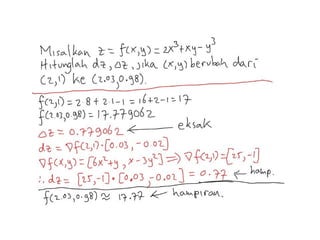 Misalkan z = f(x,y) = 2x³+xy-y³
Hitunglah dz, Δz, jika (x,y) berubah dari
(2,1) ke (2.03,0.98).
f(2,1) = 2·8+2·1-1 = 16+2-1 = 17
f(2.03,0.98) = 17.779062
Δz = 0.779062 ← eksak
dz = ∇f(2,1)•[0.03, -0.02]
∇f(x,y) = [6x²+y, x-3y²] ⇒ ∇f(2,1) = [25,-1]
∴ dz = [25,-1]•[0.03, -0.02] = 0.77 ← hamp.
f(2.03,0.98) ≈ 17.77 ← hampiran.